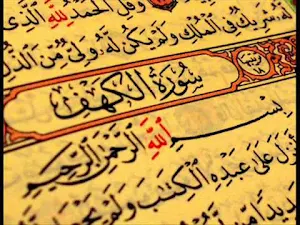 وَقُلِ الْحَمْدُ لِلَّهِ الَّذِي
لَهُ شَرِيكٌ فِي الْمُلْكِ وَلَمْ يَكُنْ لَهُ وَلِيٌّ مِنَ الذُّلِّ
سُورَةُ الْكَهْفِ
بِسْمِ اللَّهِ الرَّحْمَٰنِ الرَّحِيمِ
نْزَلَ عَلَىٰ عَبْدِهِ الْكِتَابَ وَلَمْ يَجْعَلْ